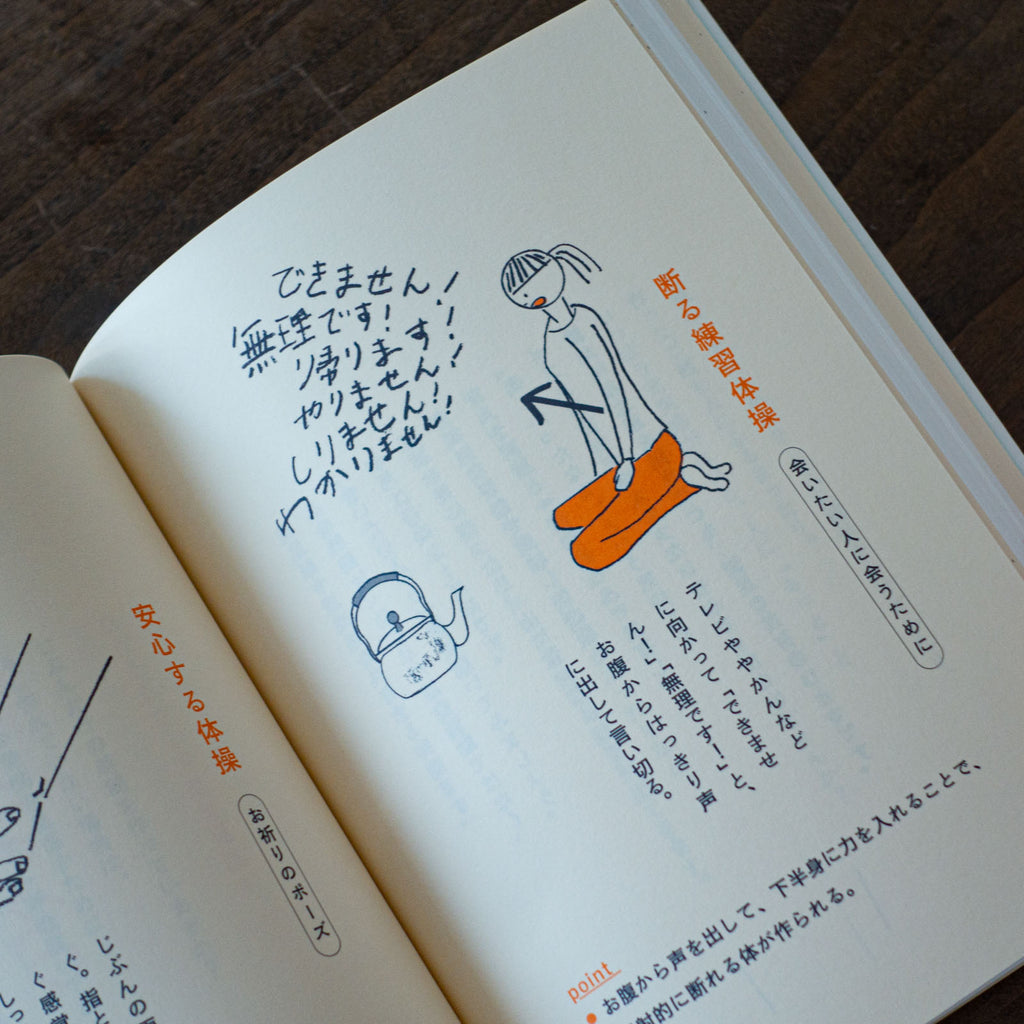 断る練習体操
会いたい人に会うために
できません!
無理です!
帰ります!
やりません!
しりません!
わかりません!
テレビややかんなど
に向かって「できませ
ん!」「無理です!」と、
お腹からはっきり声
に出して言い切る。
point
お腹から声を出して、下半身に力を入れることで、
射的に断れる体が作られる。
安心する体操
お祈りのポーズ
じぶんの
ぐ。指と
ぐ感覚
しっ